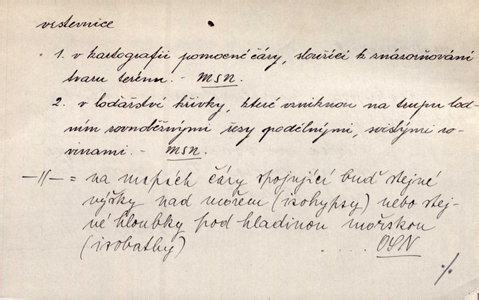 vrstevnice
1. v kartografii pomocné čáry, sloužící k znázorňování
tvaru terénu. - MSN.
2. v loďařství křivky, které vzniknou na trupu lod-
ním rovnoběžnými řezy podélnými, svislými ro-
vinami. - MSN.
—"— = na mapách čáry spojující buď stejné
výšky nad mořem (isohypsy) nebo stej-
né hloubky pod hladinou mořskou
(isobathy) .... OSN